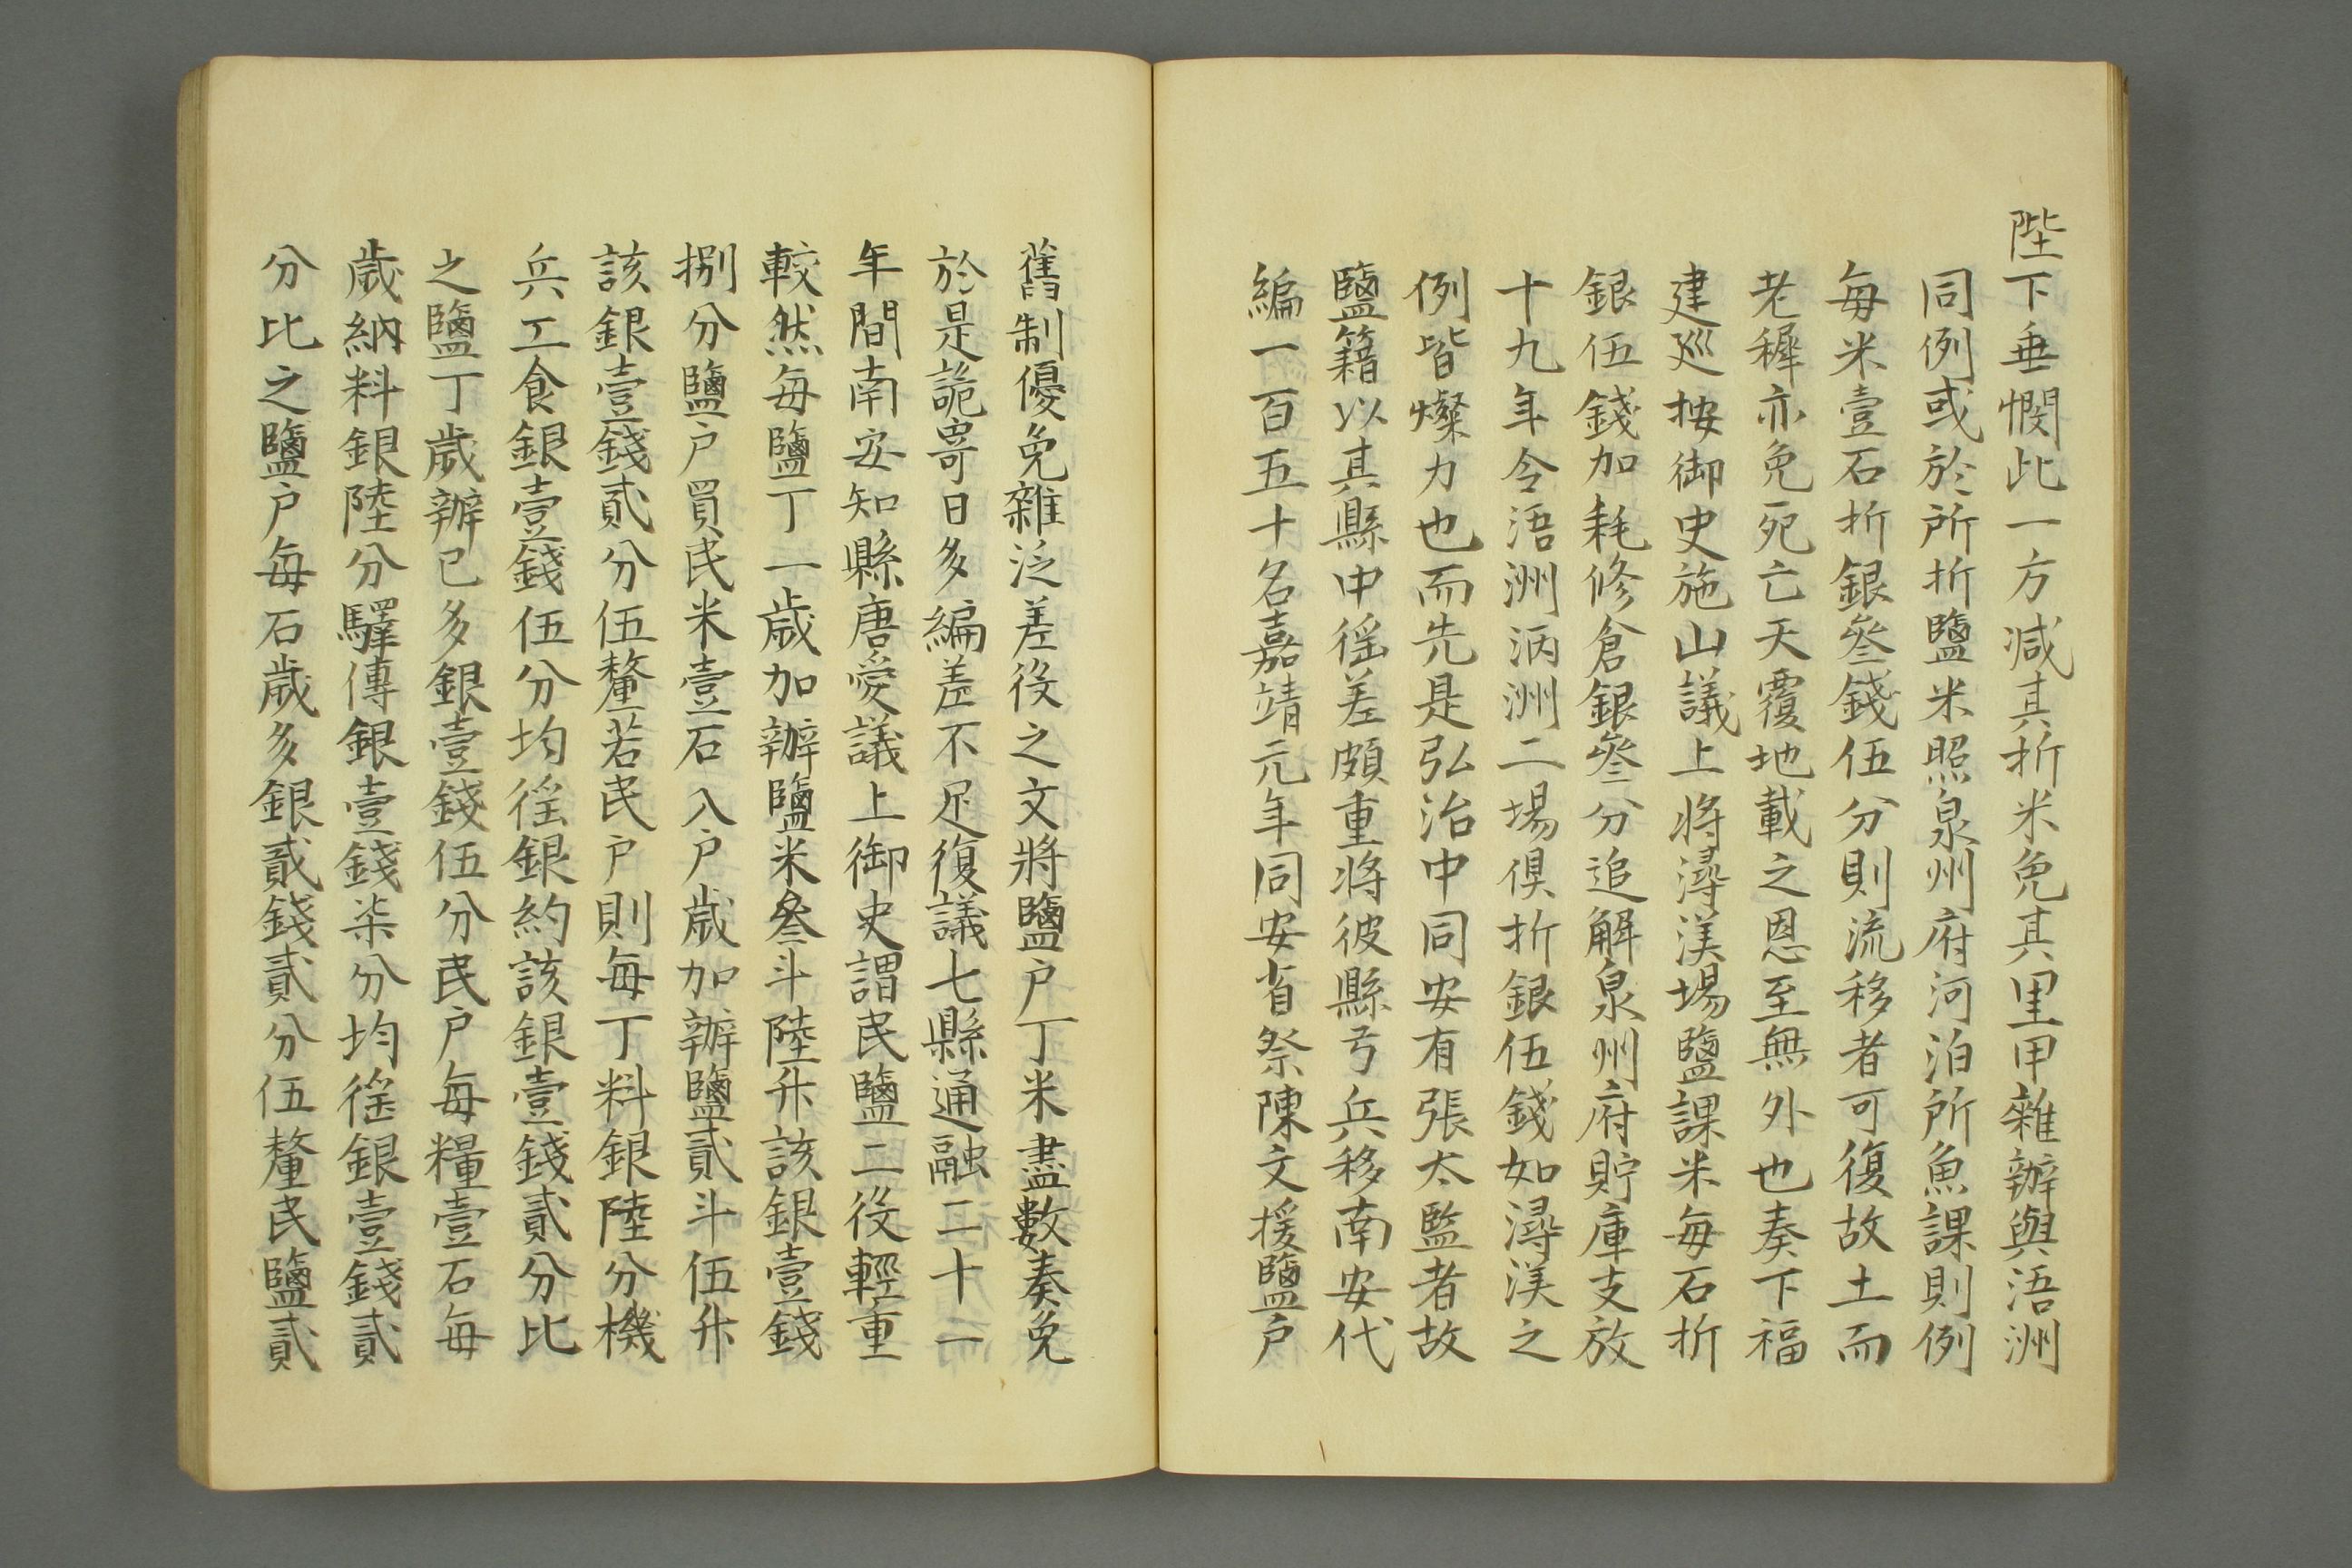 陛下垂憫此一方减其折米免其里甲雜辦與浯洲
同例或於所折鹽米照泉州府河泊所魚課則例
每米壹石折銀叄錢伍分則流移者可復故土而
老穉亦免死亡天覆地載之恩至無外也奏下福
建廵按御史施山議上將潯渼場鹽課米每石折
銀伍錢加耗修倉銀叄分追解泉州府貯庫支放
十九年令浯洲洒洲二場俱折銀伍錢如潯渼之
例皆燦力也而先是弘治中同安有張太監者故
鹽籍以其縣中徭差頗重將彼縣弓兵移南安代
編一百五十名嘉靖元年同安省祭陳文援鹽户
舊制優免雜泛差役之文將鹽户丁米盡數奏免
於是詭寄日多編差不足復議七縣通融二十一
年間南安知縣唐愛議上御史謂民鹽二役輕重
較然每鹽丁一歲加辦鹽米叄斗陸升該銀壹錢
捌分鹽户買民米壹石入户歲加辦鹽貳斗伍升
該銀壹錢貳分伍釐若民户則每丁料銀陸分機
兵工食銀壹錢伍分均徭銀約該銀壹錢貳分比
之鹽丁歲辦已多銀壹錢伍分民户每糧壹石每
歲納料銀陸分驛傳銀壹錢柒分均徭銀壹錢貳
分比之鹽户每石歲多銀貳錢貳分伍釐民鹽貳